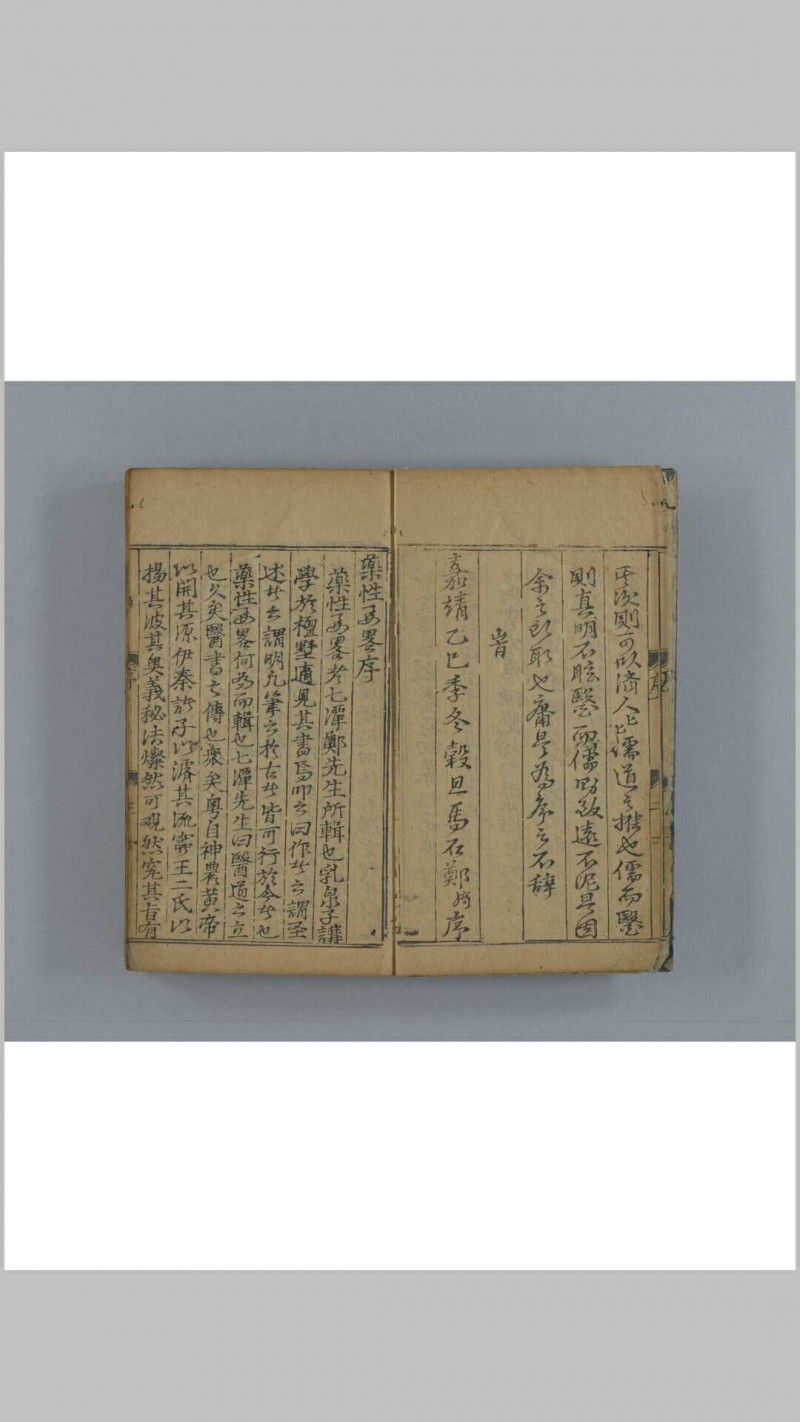 其次則可以濟人上儒道之推也儒而醫
則真明不眩醫而儒則致遠不泥是固
余之所取也庸是為序之不辭
皆
嘉靖乙巳季冬穀旦馬石鄭序
藥性要畧序
藥性要畧者七潭鄭先生所輯也乳泉子講
學於檀墅適見其書焉叩之曰作者之謂聖
述者之謂明凡筆之於古者皆可行於今者也
藥性要畧何為而輯也七潭先生曰醫道之立
也久矣醫書之傳也衆矣粵自神農黃帝
以開其源伊秦諸子以濬其流甯王二氏以
揚其波其奧義秘法燦然可觀然究其旨有
序
序